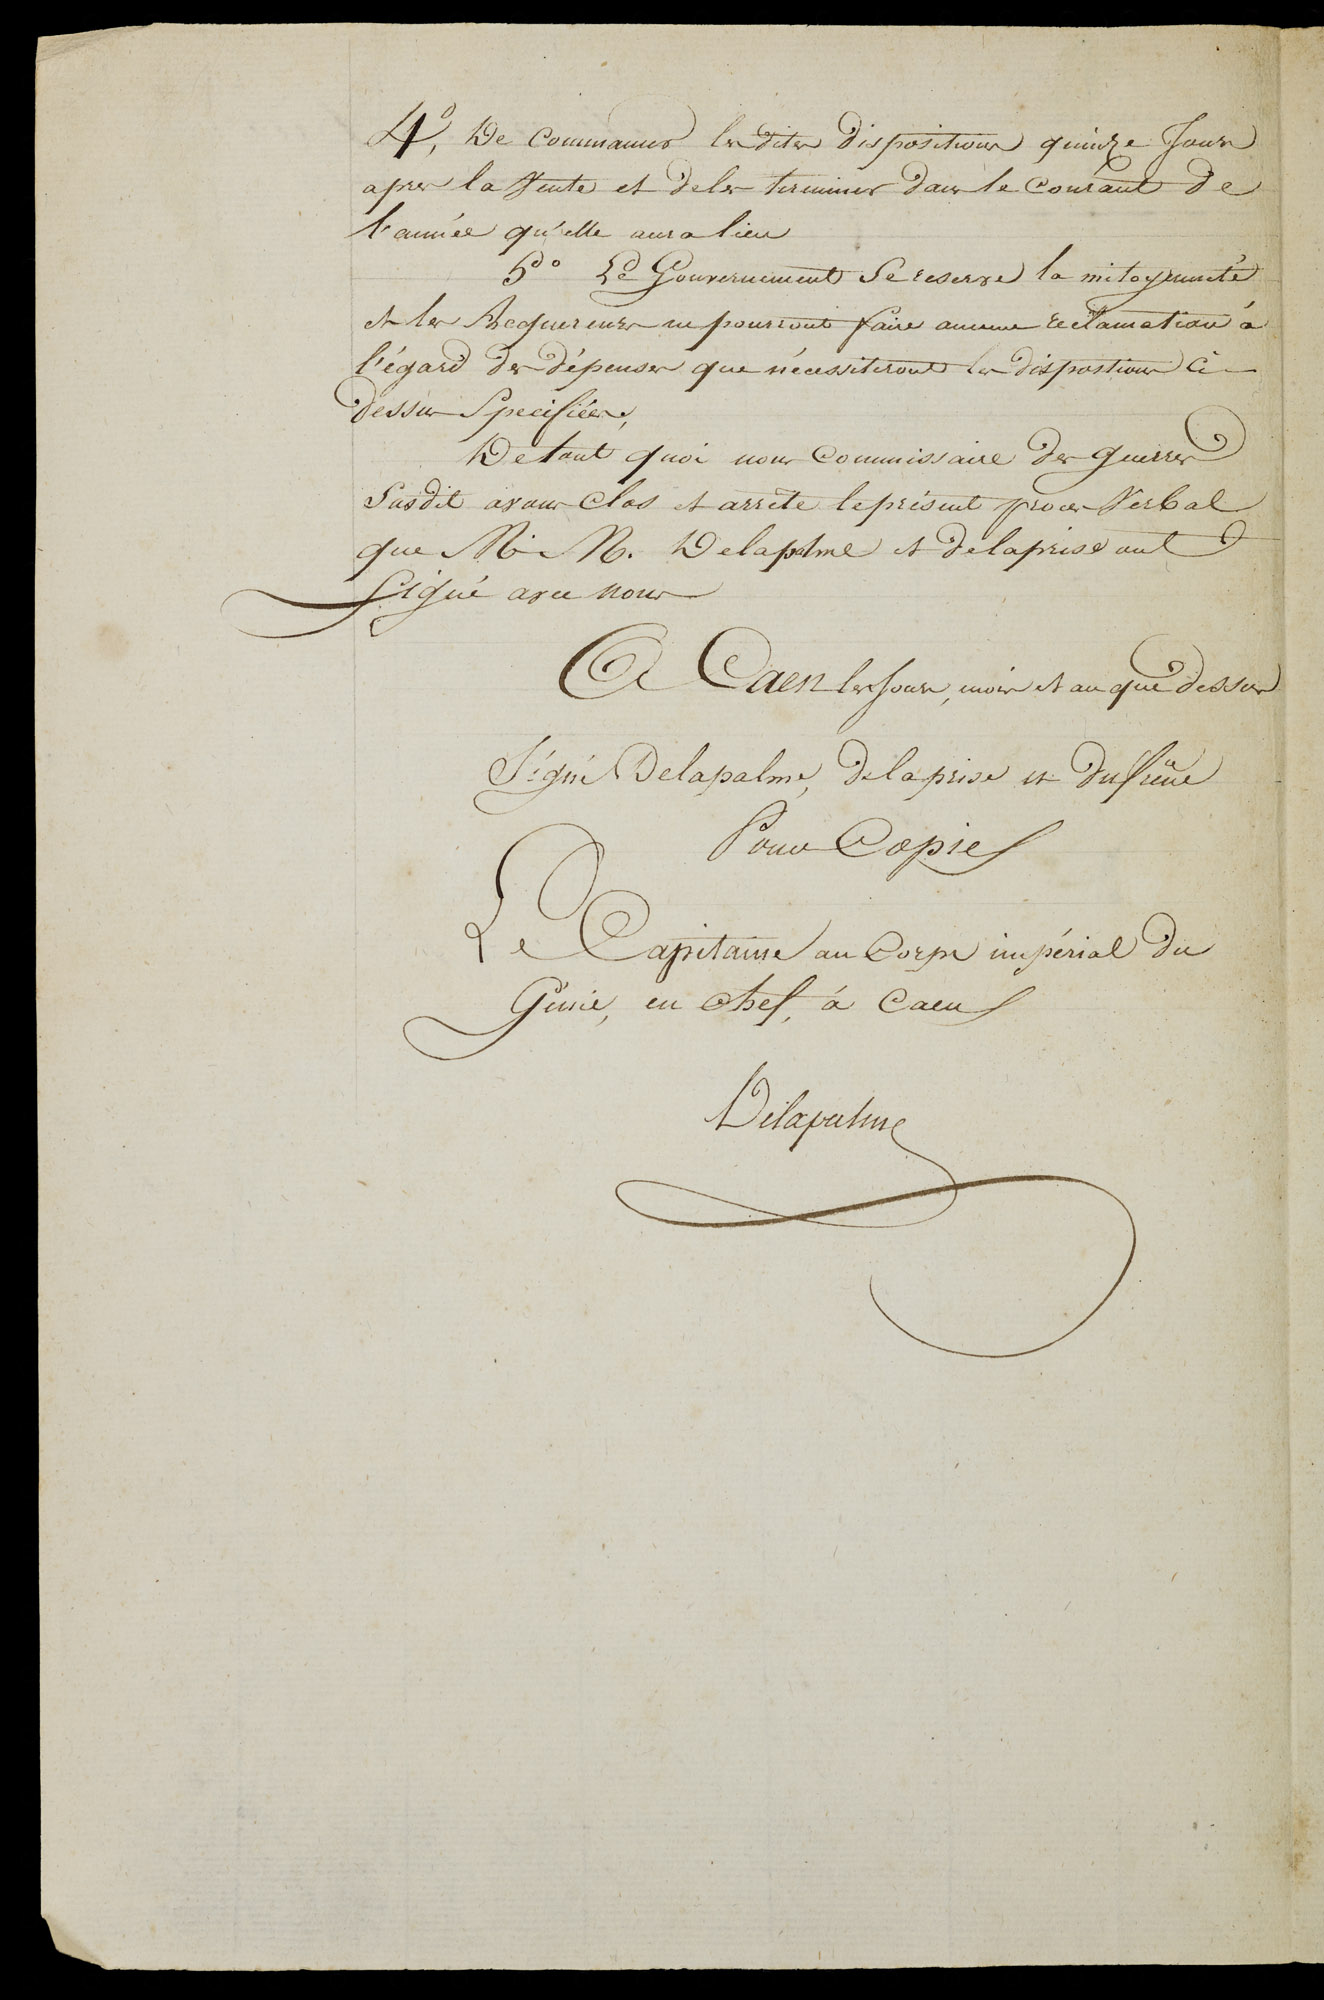 4°, De commancer les dites dispositions quinze Jours
apres la Vente et de les terminer dans le courant de
l'année qu'elle aura lieu
5° Le Gouvernement Se reserve la mitoyenneté
et les Acquereurs ne pourront faire aucune reclamation à
l'égard des dépenses que nécessiteront les dispositions Ci-
dessus Specifiées,
De tout quoi nous Commissaire des guerres
Susdit avons Clos et arrete le présent proces Verbal
que M. M. Delapalme et Delaprise ont
Signé avec nous
A Caen les Jours, mois et an que dessus
Signé Delapalme, Delaprise et Dufresne
Pour Copie
Le Capitaine au Corps impérial du
Génie, en chef, à Caen
Delapalme